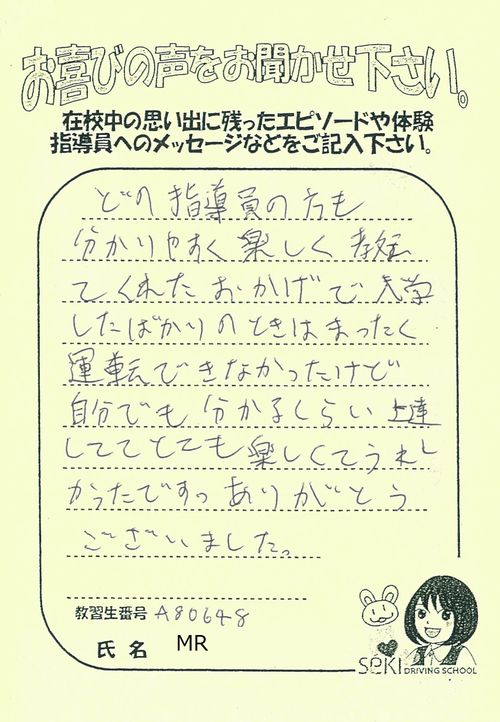 お喜びの声をお聞かせ下さい。
在校中の思い出に残ったエピソードや体験
指導員へのメッセージなどをご記入下さい。
どの指導員の方も
分かりやすく楽しく教え
てくれたおかげで入学
したばかりのときはまったく
運転できなかったけど
自分でも分かるくらい上達
しててとても楽しくてうれし
かったですっありがとう
ございました。
教習生番号 A80648
氏名 MR
SEKI DRIVING SCHOOL